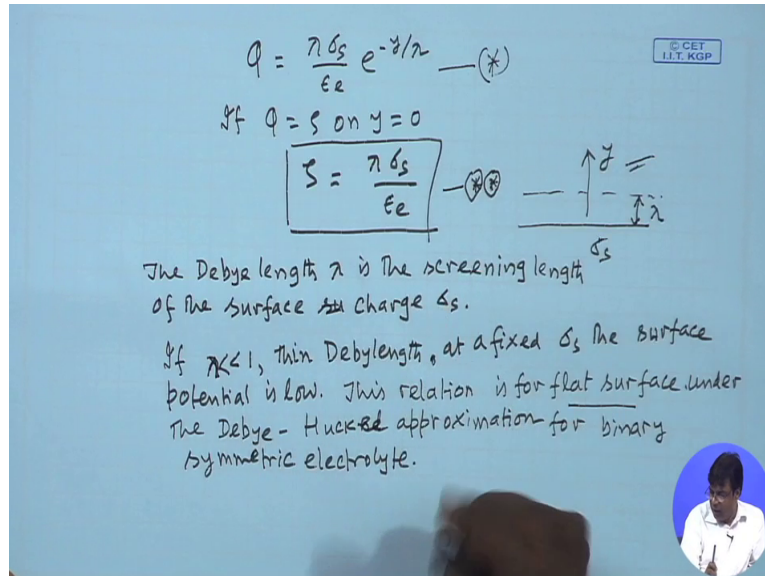 φ = λσs/εe e^-y/λ —(*)
© CET
I.I.T. KGP
If φ = ζ on y=0
ζ = λσs/εe —(*)(*)
y
λ
σs
The Debye length λ is the screening length
of the surface su charge σs.
If λ<<1, thin Debylength, at a fixed σs the surface
potential is low. This relation is for flat surface under
the Debye - Huckel approximation for binary
symmetric electrolyte.